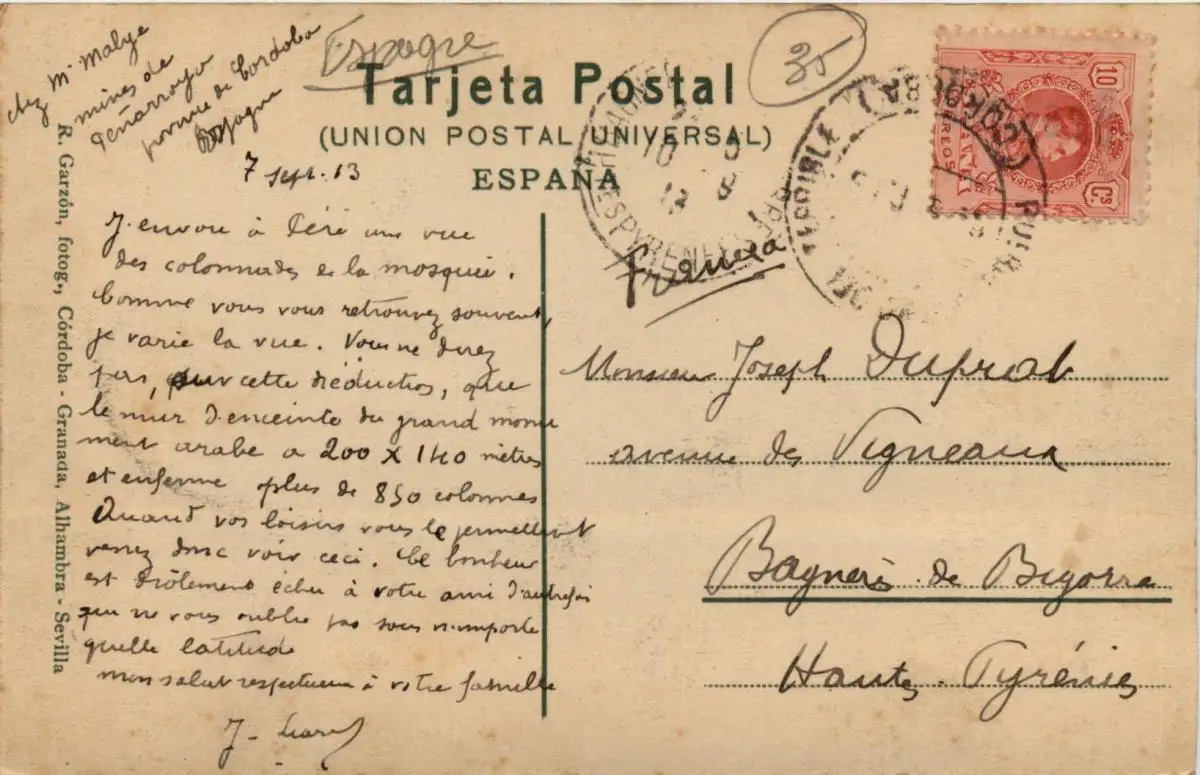 Espagne
35
Tarjeta Postal
(UNION POSTAL UNIVERSAL)
ESPAÑA
chez Mr Malye
mines de
Peñarroya
province de Cordoba
Espagne
7 Sept. 13
J'envoie à Péré une vue
des colonnades de la mosquée.
Comme vous vous retrouvez souvent,
je varie la vue. Vous ne direz
pas, sur cette réduction, que
le mur d'enceinte du grand monu
ment arabe a 200 x 140 mètres
et enferme plus de 850 colonnes
Quand vos loisirs vous le permettront
venez donc voir ceci. Ce bonheur
est drôlement échu à votre ami d'autrefois
qui ne vous oublie pas sous n'importe
quelle latitude
mon salut respectueux à votre famille
J.
R. Garzón, fotog., Córdoba - Granada, Alhambra - Sevilla
Francia
Monsieur Joseph Duprat
avenue des Vigneaux
Bagnères de Bigorre
Hautes-Pyrénées
10 Cs
CORREOS
TERRIBLE